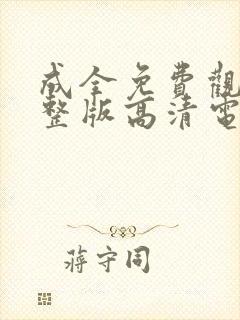 成全免費觀
整版高清電
蔣守同